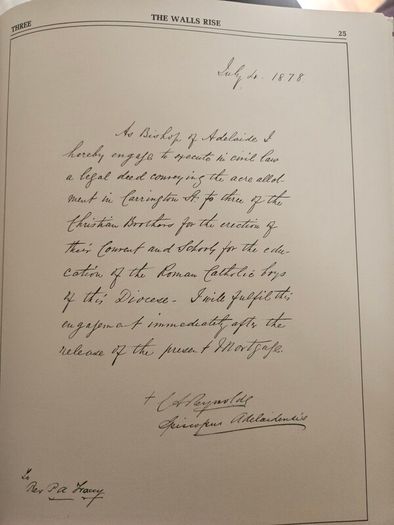 THREE
THE WALLS RISE
25
July 4. 1878
As Bishop of Adelaide I
hereby engage to execute in civil law
a legal deed conveying the acre allot
ment in Carrington St to three of the
Christian Brothers for the erection of
their Convent and Schools for the edu-
cation of the Roman Catholic boys
of this Diocese - I will fulfil this
engagement immediately after the
release of the present Mortgage.
+ CA Reynolds
Episcopus Adelaidensis
To
Rev P A